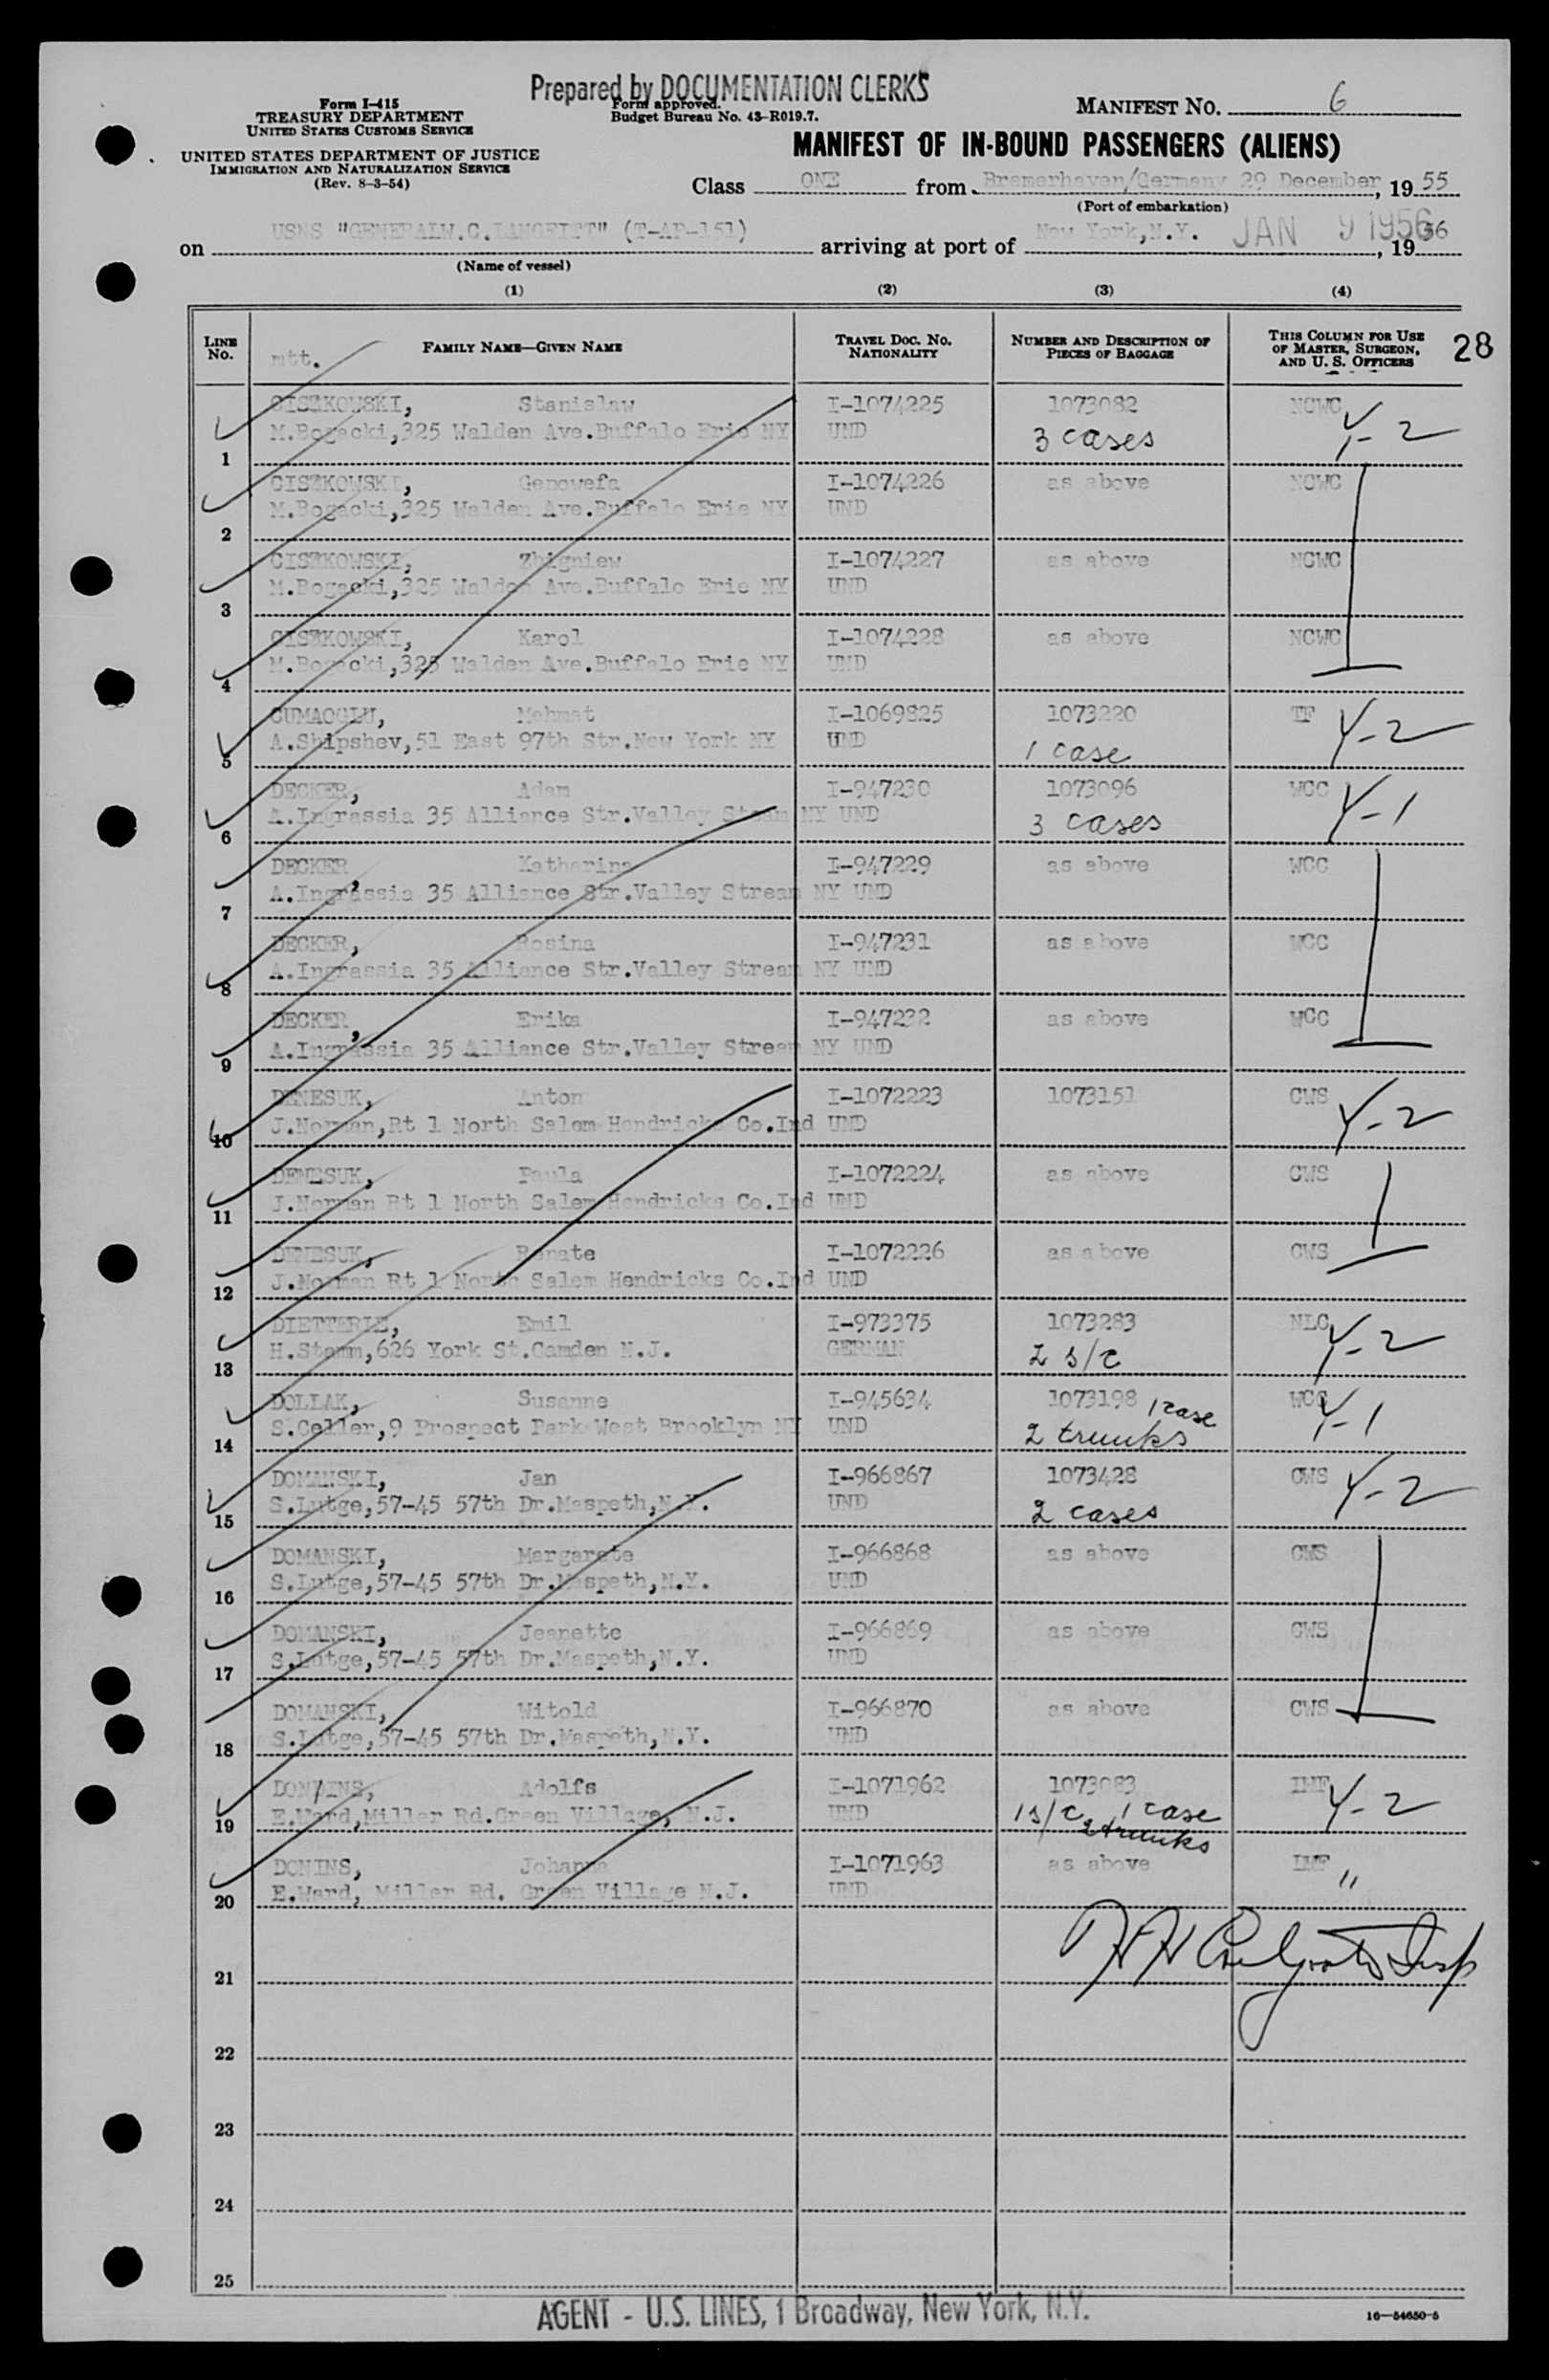 Prepared by DOCUMENTATION CLERKS
Form I-415
TREASURY DEPARTMENT
UNITED STATES CUSTOMS SERVICE
Form approved.
Budget Bureau No. 43-R019.7.
MANIFEST NO. 6
UNITED STATES DEPARTMENT OF JUSTICE
IMMIGRATION AND NATURALIZATION SERVICE
(Rev. 8-3-54)
MANIFEST OF IN-BOUND PASSENGERS (ALIENS)
Class ONE from Bremerhaven/Germany 29 December, 1955
(Port of embarkation)
on USNS "GENERALW.C.LANGFITT" (T-AP-151) arriving at port of New York,N.Y. JAN 9 1956, 1956
(Name of vessel)
(1) (2) (3) (4)
LINE No. mtt. FAMILY NAME—GIVEN NAME TRAVEL DOC. NO. NATIONALITY NUMBER AND DESCRIPTION OF PIECES OF BAGGAGE THIS COLUMN FOR USE OF MASTER, SURGEON, AND U. S. OFFICERS 28
CISZKOWSKI, Stanislaw I-1074225 1073082 NCWC
1 M.Bogacki,325 Walden Ave.Buffalo Erie NY UND 3 cases Y-2
CISZKOWSKI, Genowefa I-1074226 as above NCWC
2 M.Bogacki,325 Walden Ave.Buffalo Erie NY UND
CISZKOWSKI, Zbigniew I-1074227 as above NCWC
3 M.Bogacki,325 Walden Ave.Buffalo Erie NY UND
CISZKOWSKI, Karol I-1074228 as above NCWC
4 M.Bogacki,325 Walden Ave.Buffalo Erie NY UND
CUMAOGLU, Mehmet I-1069825 1073220 TF Y-2
5 A.Shipshev,51 East 97th Str.New York NY UND 1 case
DECKER, Adam I-947230 1073096 WCC Y-1
6 A.Ingrassia 35 Alliance Str.Valley Steam NY UND 3 cases
DECKER, Katharina I-947229 as above WCC
7 A.Ingrassia 35 Alliance Str.Valley Stream NY UND
DECKER, Rosina I-947231 as above WCC
8 A.Ingrassia 35 Alliance Str.Valley Stream NY UND
DECKER, Erika I-947232 as above WCC
9 A.Ingrassia 35 Alliance Str.Valley Stream NY UND
DENESUK, Anton I-1072223 1073151 CWS Y-2
10 J.Norman,Rt 1 North Salem Hendricks Co.Ind UND
DENESUK, Paula I-1072224 as above CWS
11 J.Norman Rt 1 North Salem Hendricks Co.Ind UND
DENESUK, Renate I-1072226 as above CWS
12 J.Norman Rt 1 North Salem Hendricks Co.Ind UND
DIETTERLE, Emil I-973375 1073283 NLC Y-2
13 H.Stamm,626 York St.Camden N.J. GERMAN 2 s/c
DOLLAK, Susanne I-945634 1073198 1 case WCC Y-1
14 S.Celler,9 Prospect Park West Brooklyn NY UND 2 trunks
DOMANSKI, Jan I-966867 1073428 CWS Y-2
15 S.Lutge,57-45 57th Dr.Maspeth,N.Y. UND 2 cases
DOMANSKI, Margarete I-966868 as above CWS
16 S.Lutge,57-45 57th Dr.Maspeth,N.Y. UND
DOMANSKI, Jeanette I-966869 as above CWS
17 S.Lutge,57-45 57th Dr.Maspeth,N.Y. UND
DOMANSKI, Witold I-966870 as above CWS
18 S.Lutge,57-45 57th Dr.Maspeth,N.Y. UND
DONINS, Adolfs I-1071962 1073083 LMF Y-2
19 E.Ward,Miller Rd.Green Village, N.J. UND 1 s/c, 1 case
2 trunks
DONINS, Johanna I-1071963 as above LMF "
20 E.Ward, Miller Rd. Green Village N.J. UND
21
22
23
24
25
AGENT - U.S. LINES, 1 Broadway, New York, N.Y.
16—54650-5